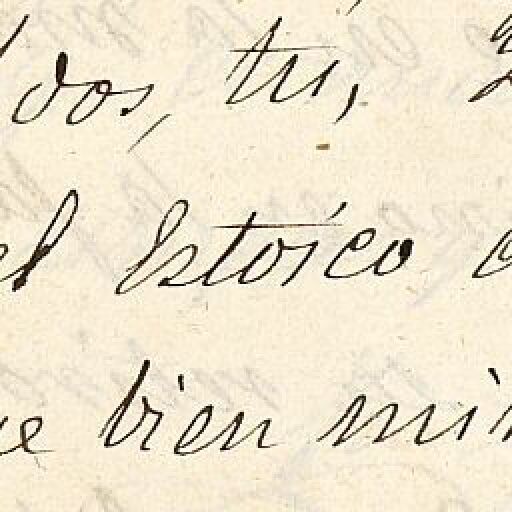 dos, tú,
el Estoico
bien